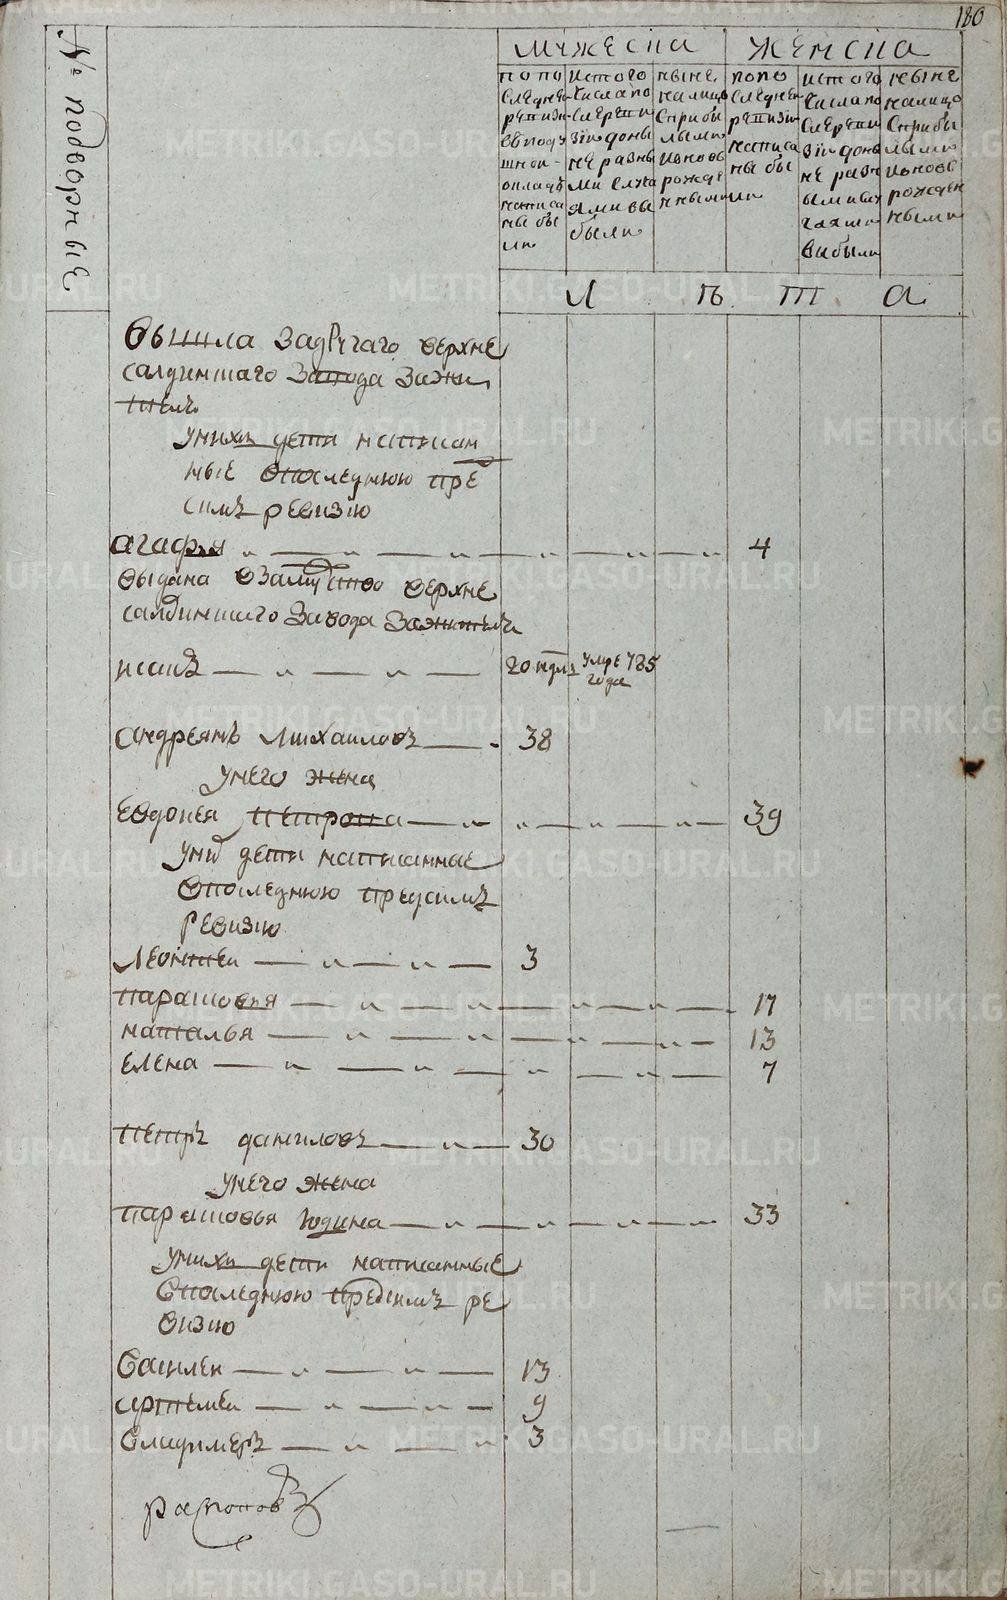 180
№ подворные
мужеска
женска
попо
следнеи
ревизи
вподу
шнои
окладъ
написа
ны бы
ли
истого
числа по
сле реви
зіи до ны
не разны
ми случа
ями вы
были
ныне
налицо
сприбы
лыми
иновь
рожде
нными
попо
следнеи
ревизи
написа
ны бы
ли
истого
числа по
сле реви
зіи до ны
не разн
ыми слу
чаями
выбыли
ныне
налицо
сприбы
лыми
иновь
рожден
ными
л ѣ т а
вышла задругаго верхне
салдинскаго завода зажи
телъ
уних дети написан
ные впоследнюю пре
симъ ревизию
агафья 4
выдана взамужство верхне
салдинскаго завода зажителъ
исакъ 20 умре 785
года
андреянъ михаиловъ 38
унего жена
евдокея петрова 39
уних дети написанные
впоследнюю предсимъ
ревизию
леонтеи 3
парасковья 17
наталья 13
елена 7
петръ даниловъ 30
унего жена
парасковья родина 33
уних дети написанные
впоследнюю предсимъ ре
визию
василеи 13
артемеи 9
владимеръ 3
METRIKI.GASO-URAL.RU